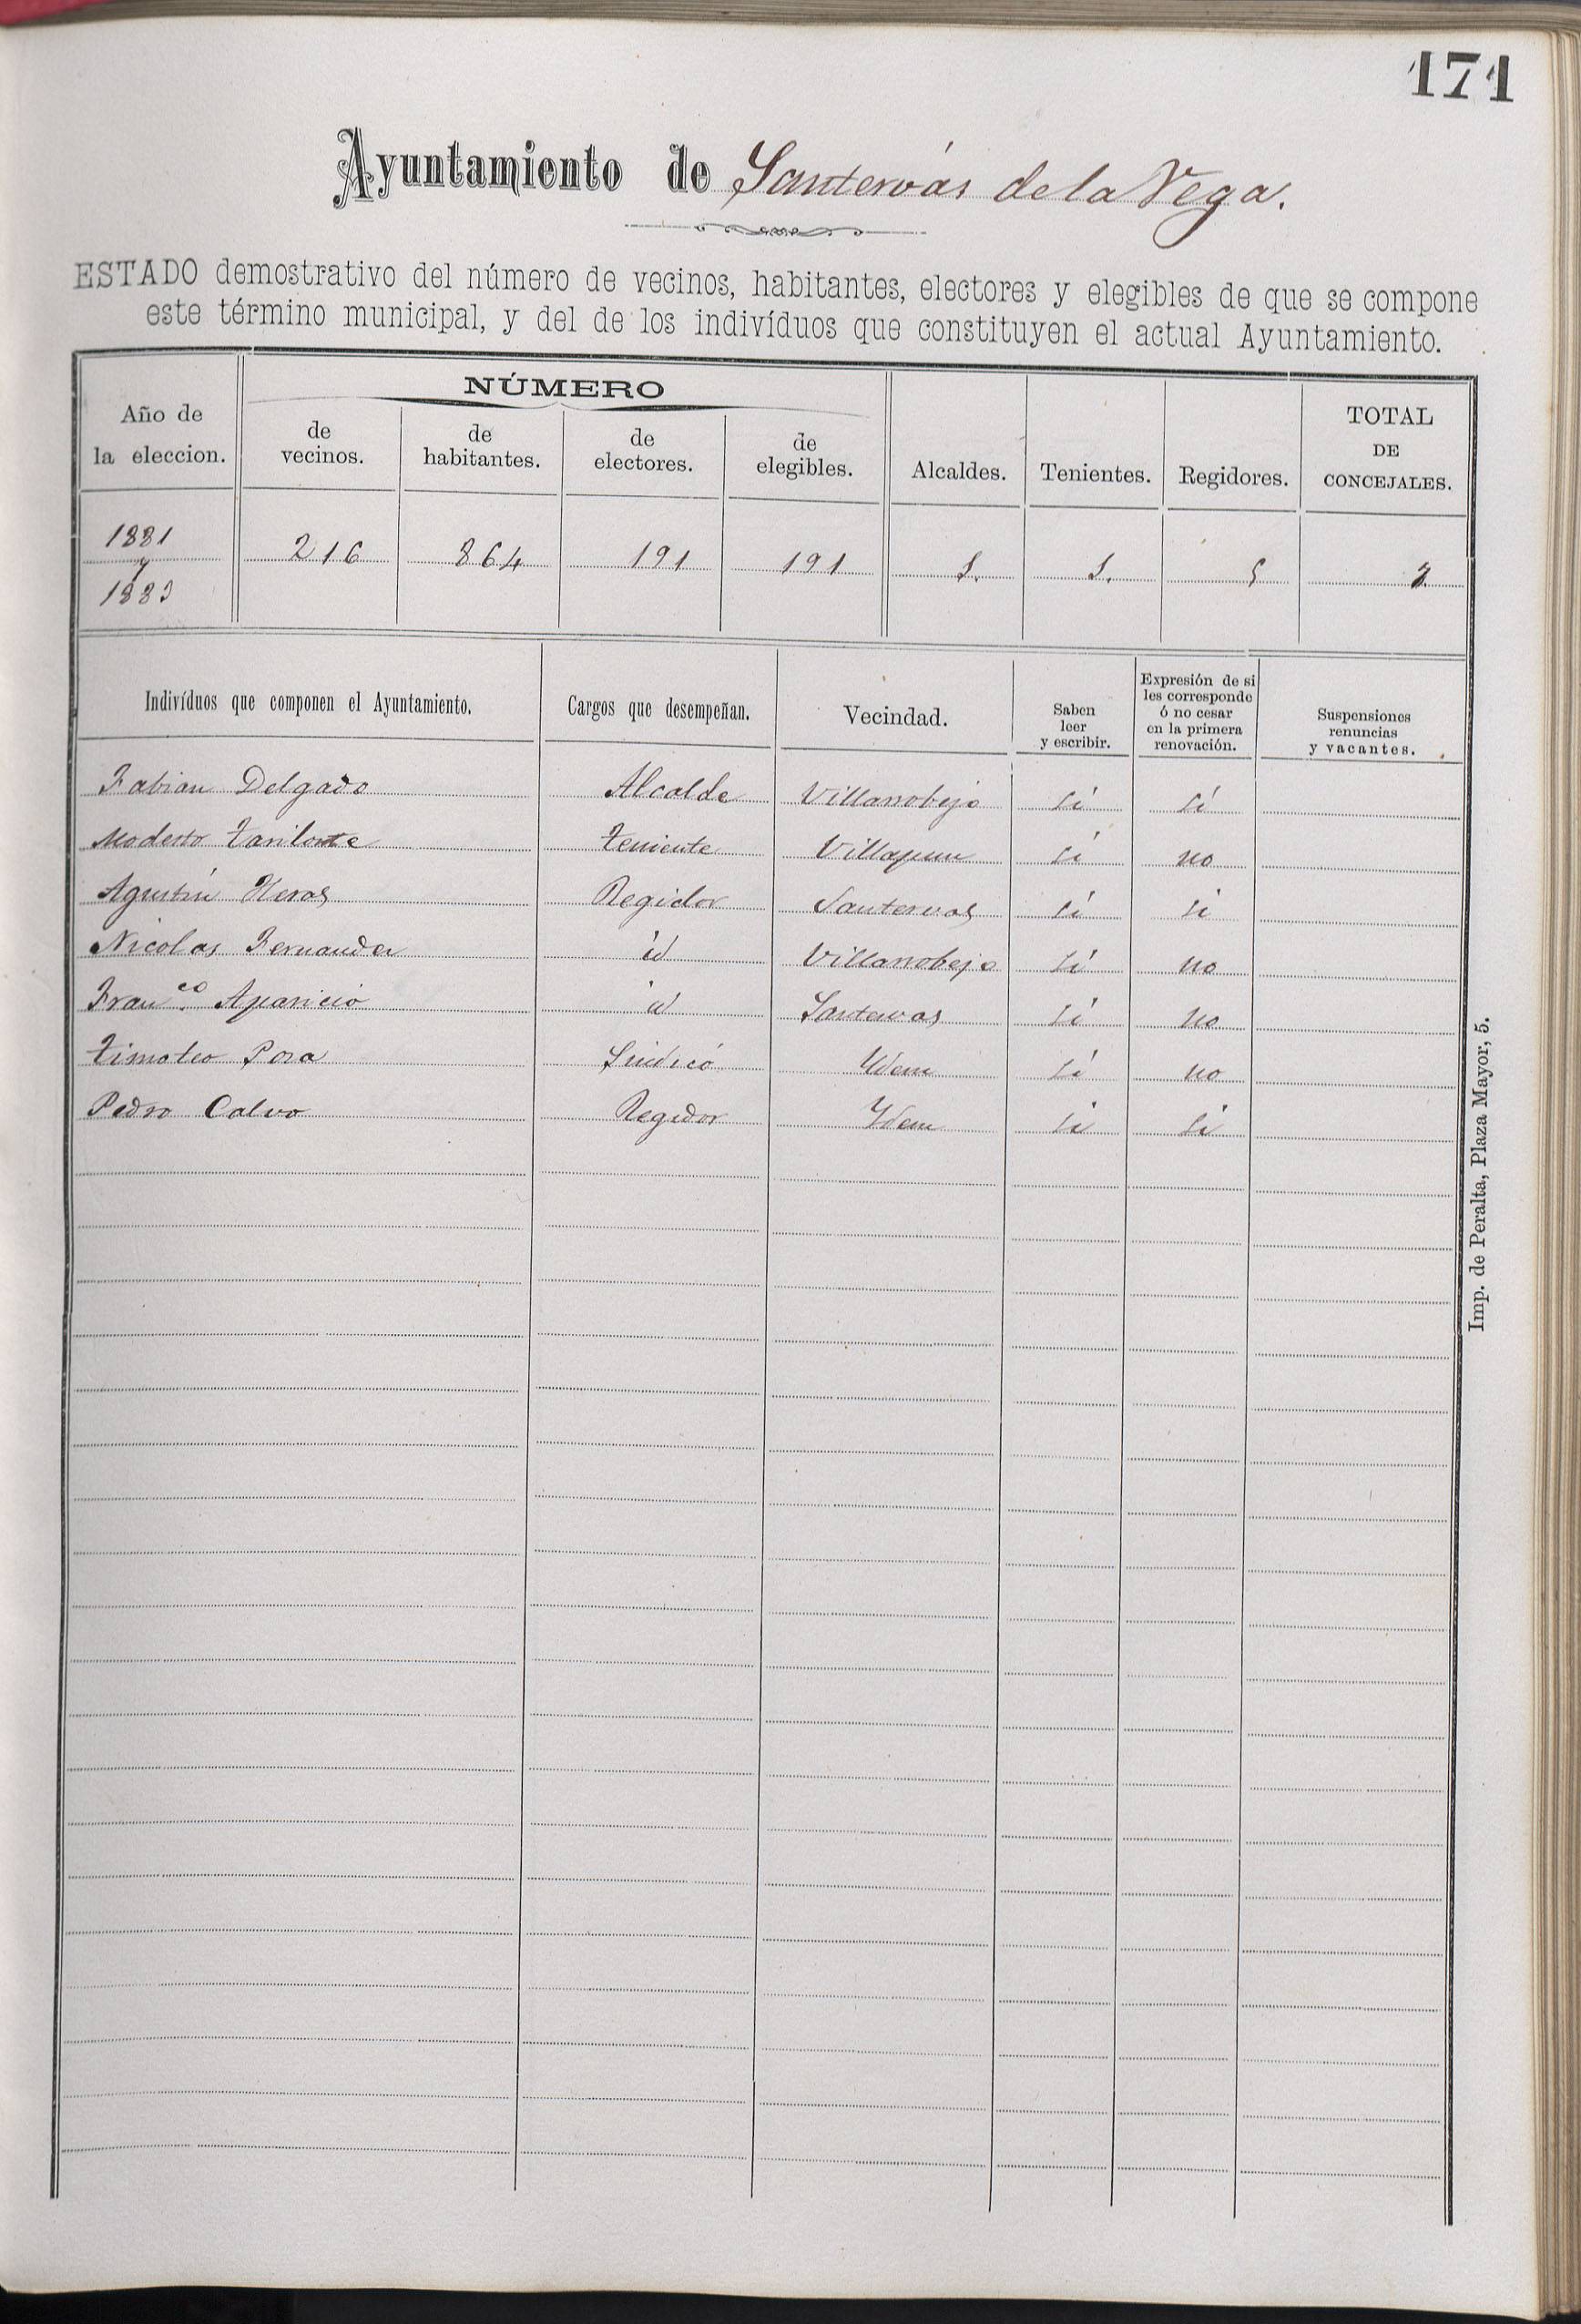 171
Ayuntamiento de Santervás de la Vega.
ESTADO demostrativo del número de vecinos, habitantes, electores y elegibles de que se compone
este término municipal, y del de los indivíduos que constituyen el actual Ayuntamiento.
Año de la eleccion. NÚMERO de vecinos. de habitantes. de electores. de elegibles. Alcaldes. Tenientes. Regidores. TOTAL DE CONCEJALES.
1881 y 1883 216 864 191 191 1. 1. 5 7
Indivíduos que componen el Ayuntamiento. Cargos que desempeñan. Vecindad. Saben leer y escribir. Expresión de si les corresponde ó no cesar en la primera renovación. Suspensiones renuncias y vacantes.
Fabian Delgado Alcalde Villarrobejo si si
Modesto teniente Villapun si no
Agustín Heras Regidor Santervas si si
Nicolas Fernandez id Villarrobejo si no
Fran.co Aparicio id Santervas si no
timoteo Síndicó Ydem si no
Pedro Calvo Regidor Ydem si si
Imp. de Peralta, Plaza Mayor, 5.